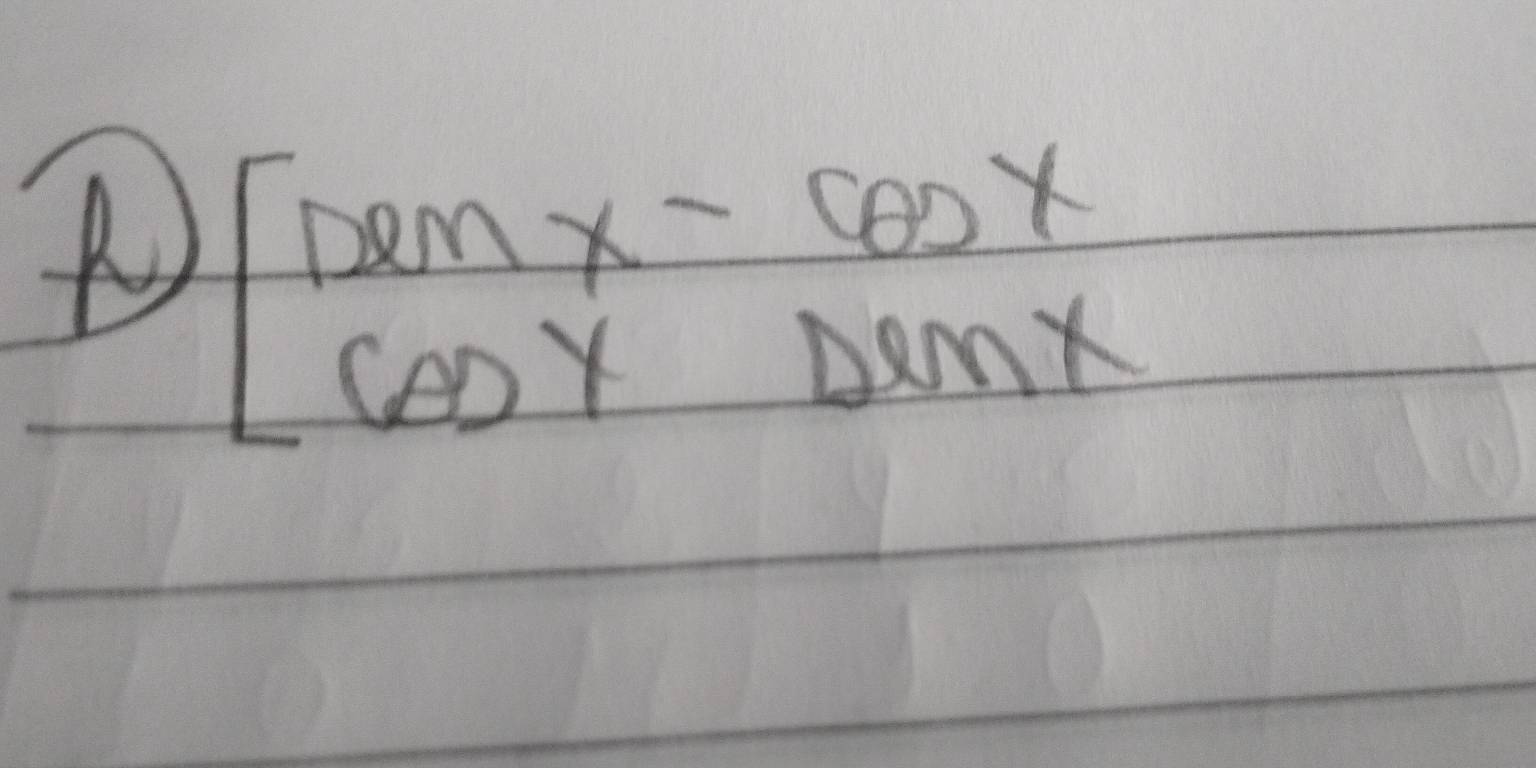 A) [ sen x - cos x
cos x sen x